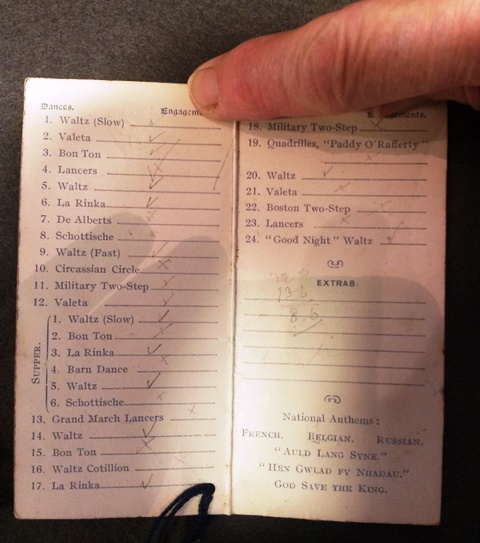 Dances.
1. Waltz (Slow)
2. Valeta
3. Bon Ton
4. Lancers
5. Waltz
6. La Rinka
7. De Alberts
8. Schottische
9. Waltz (Fast)
10. Circassian Circle
11. Military Two-Step
12. Valeta
SUPPER.
1. Waltz (Slow)
2. Bon Ton
3. La Rinka
4. Barn Dance
5. Waltz
6. Schottische
13. Grand March Lancers
14. Waltz
15. Bon Ton
16. Waltz Cotillion
17. La Rinka
18. Military Two-Step
19. Quadrilles, "Paddy O'Rafferty"
20. Waltz
21. Valeta
22. Boston Two-Step
23. Lancers
24. "Good Night" Waltz
EXTRAS:
National Anthems:
FRENCH. BELGIAN. RUSSIAN.
"AULD LANG SYNE."
"HEN GWLAD FY NHADAU."
GOD SAVE THE KING.